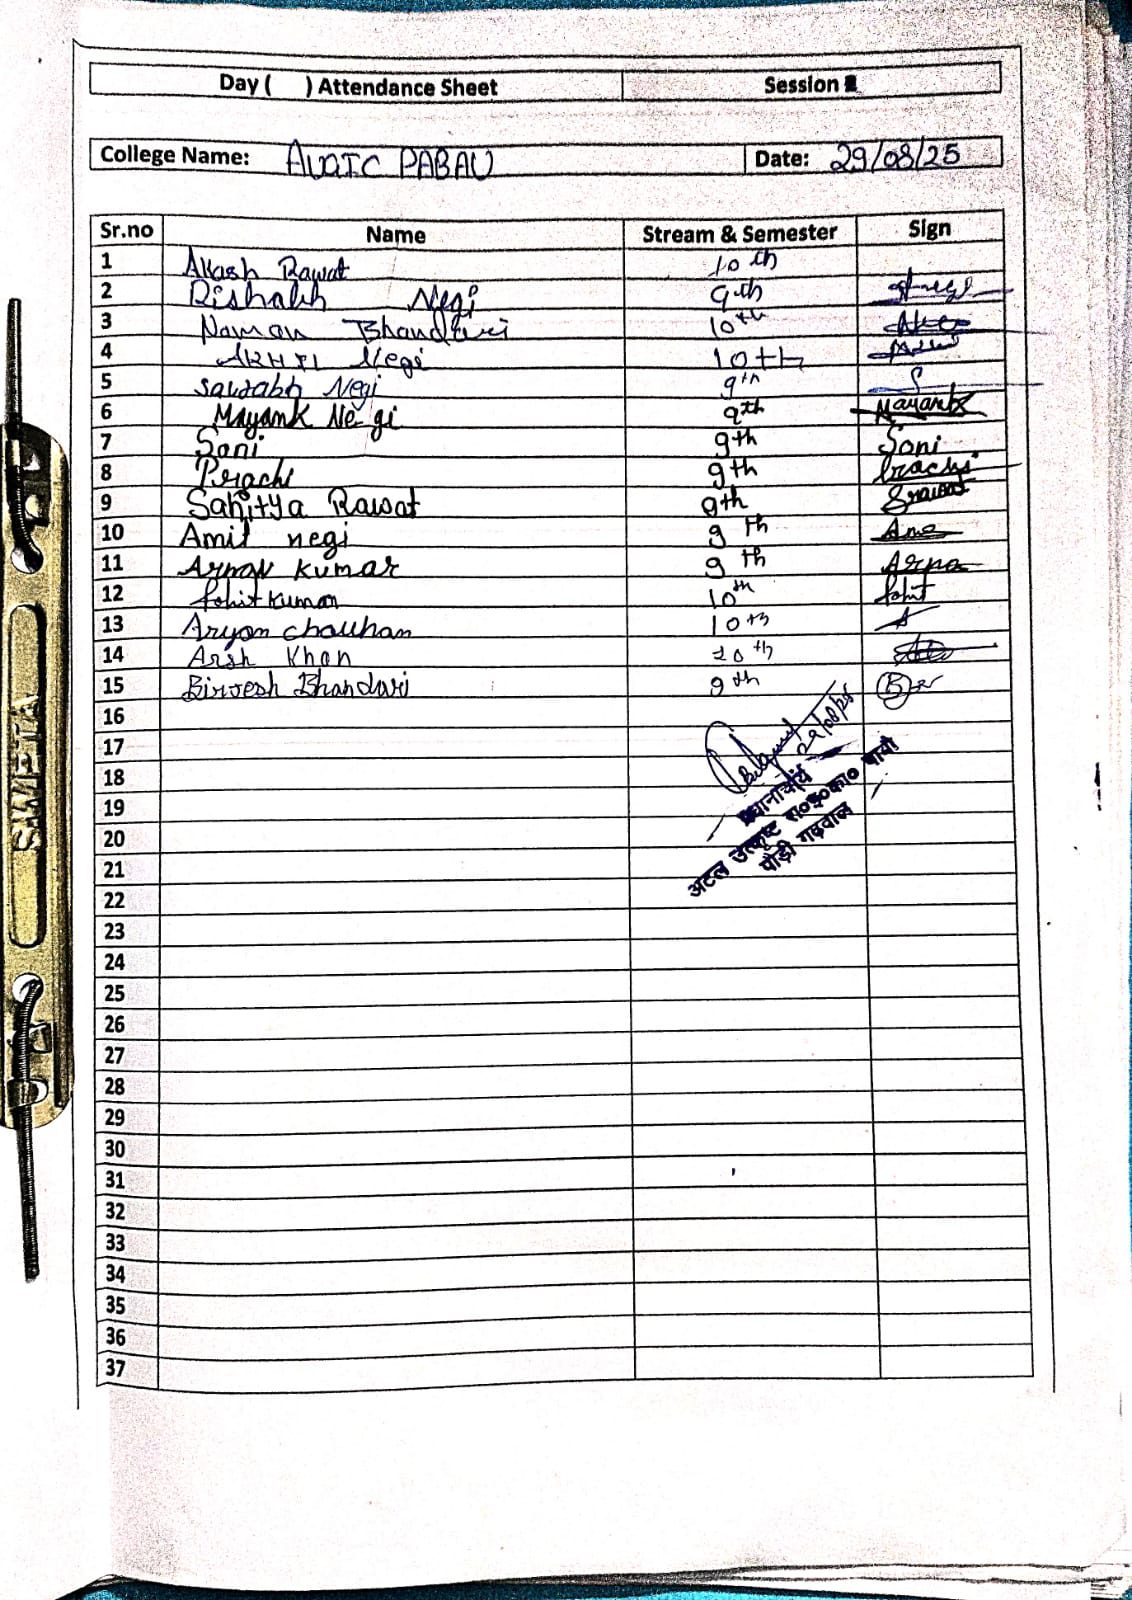 Day ( ) Attendance Sheet Session
College Name: AUGIC PABAU Date: 29/08/25
Sr.no Name Stream & Semester Sign
1 Akash Rawat 10th
2 Rishabh Negi 9th Anegi
3 Naman Bhandari 10th
4 AKHIL Negi 10th
5 Saurabh Negi 9th S
6 Mayank Negi 9th Mayank
7 Soni 9th Soni
8 Prachi 9th Prachi
9 Sahitya Rawat 9th Srawat
10 Amit negi 9th
11 Arnav Kumar 9th Arna
12 Rohit Kumar 10th Rohit
13 Aryan chauhan 10th A
14 Arsh Khan 10th
15 Birjesh Bhandari 9th
16
17
18
19
20
21
22
23
24
25
26
27
28
29
30
31
32
33
34
35
36
37
29/08/25
प्रधानाचार्य
अटल उत्कृष्ट रा०इ०का० पाबौ
पौड़ी गढ़वाल
SWETA